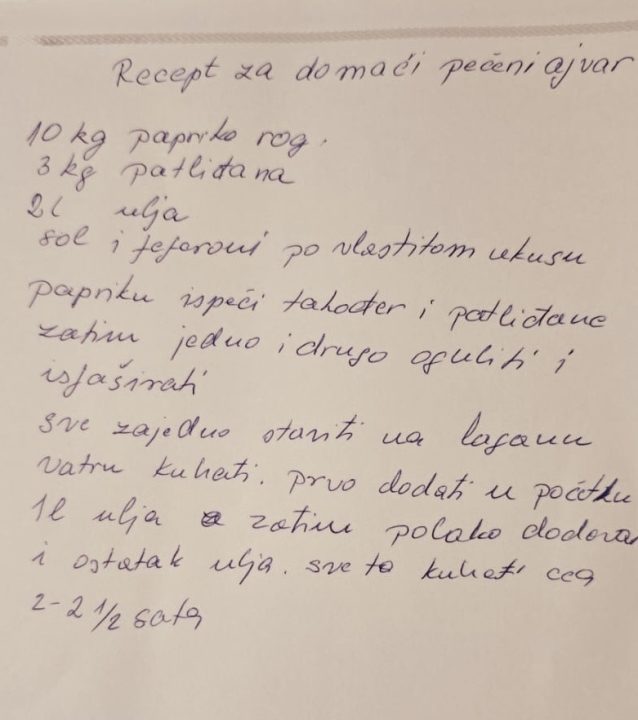 Recept za domaći pečeni ajvar
10 kg papriko rog.
3 kg patliđana
2l ulja
sol i feferoni po vlastitom ukusu
papriku ispeći također i patliđane
zatim jedno i drugo oguliti i
isfaširati
sve zajedno staviti na laganu
vatru kuhati. prvo dodati u početku
1l ulja a zatim polako dodova
i ostatak ulja. sve to kuhati cca
2-2 1/2 sata